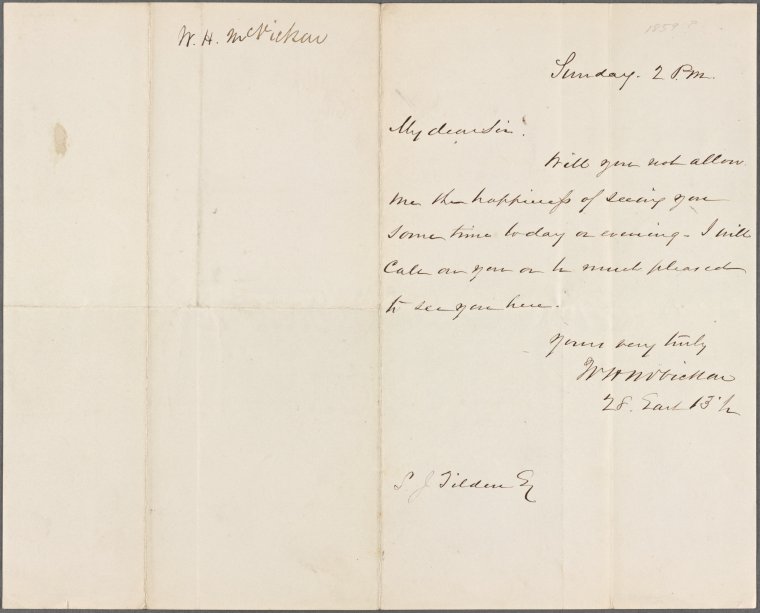 W. H. McVickar
1859?
Sunday. 2 P.M.
My dear Sir.
Will you not allow
me the happiness of seeing you
some time to day or evening - I will
call on you or be much pleased
to see you here.
Yours very truly
W H McVickar
28. East 13th
S. J Tilden Esq